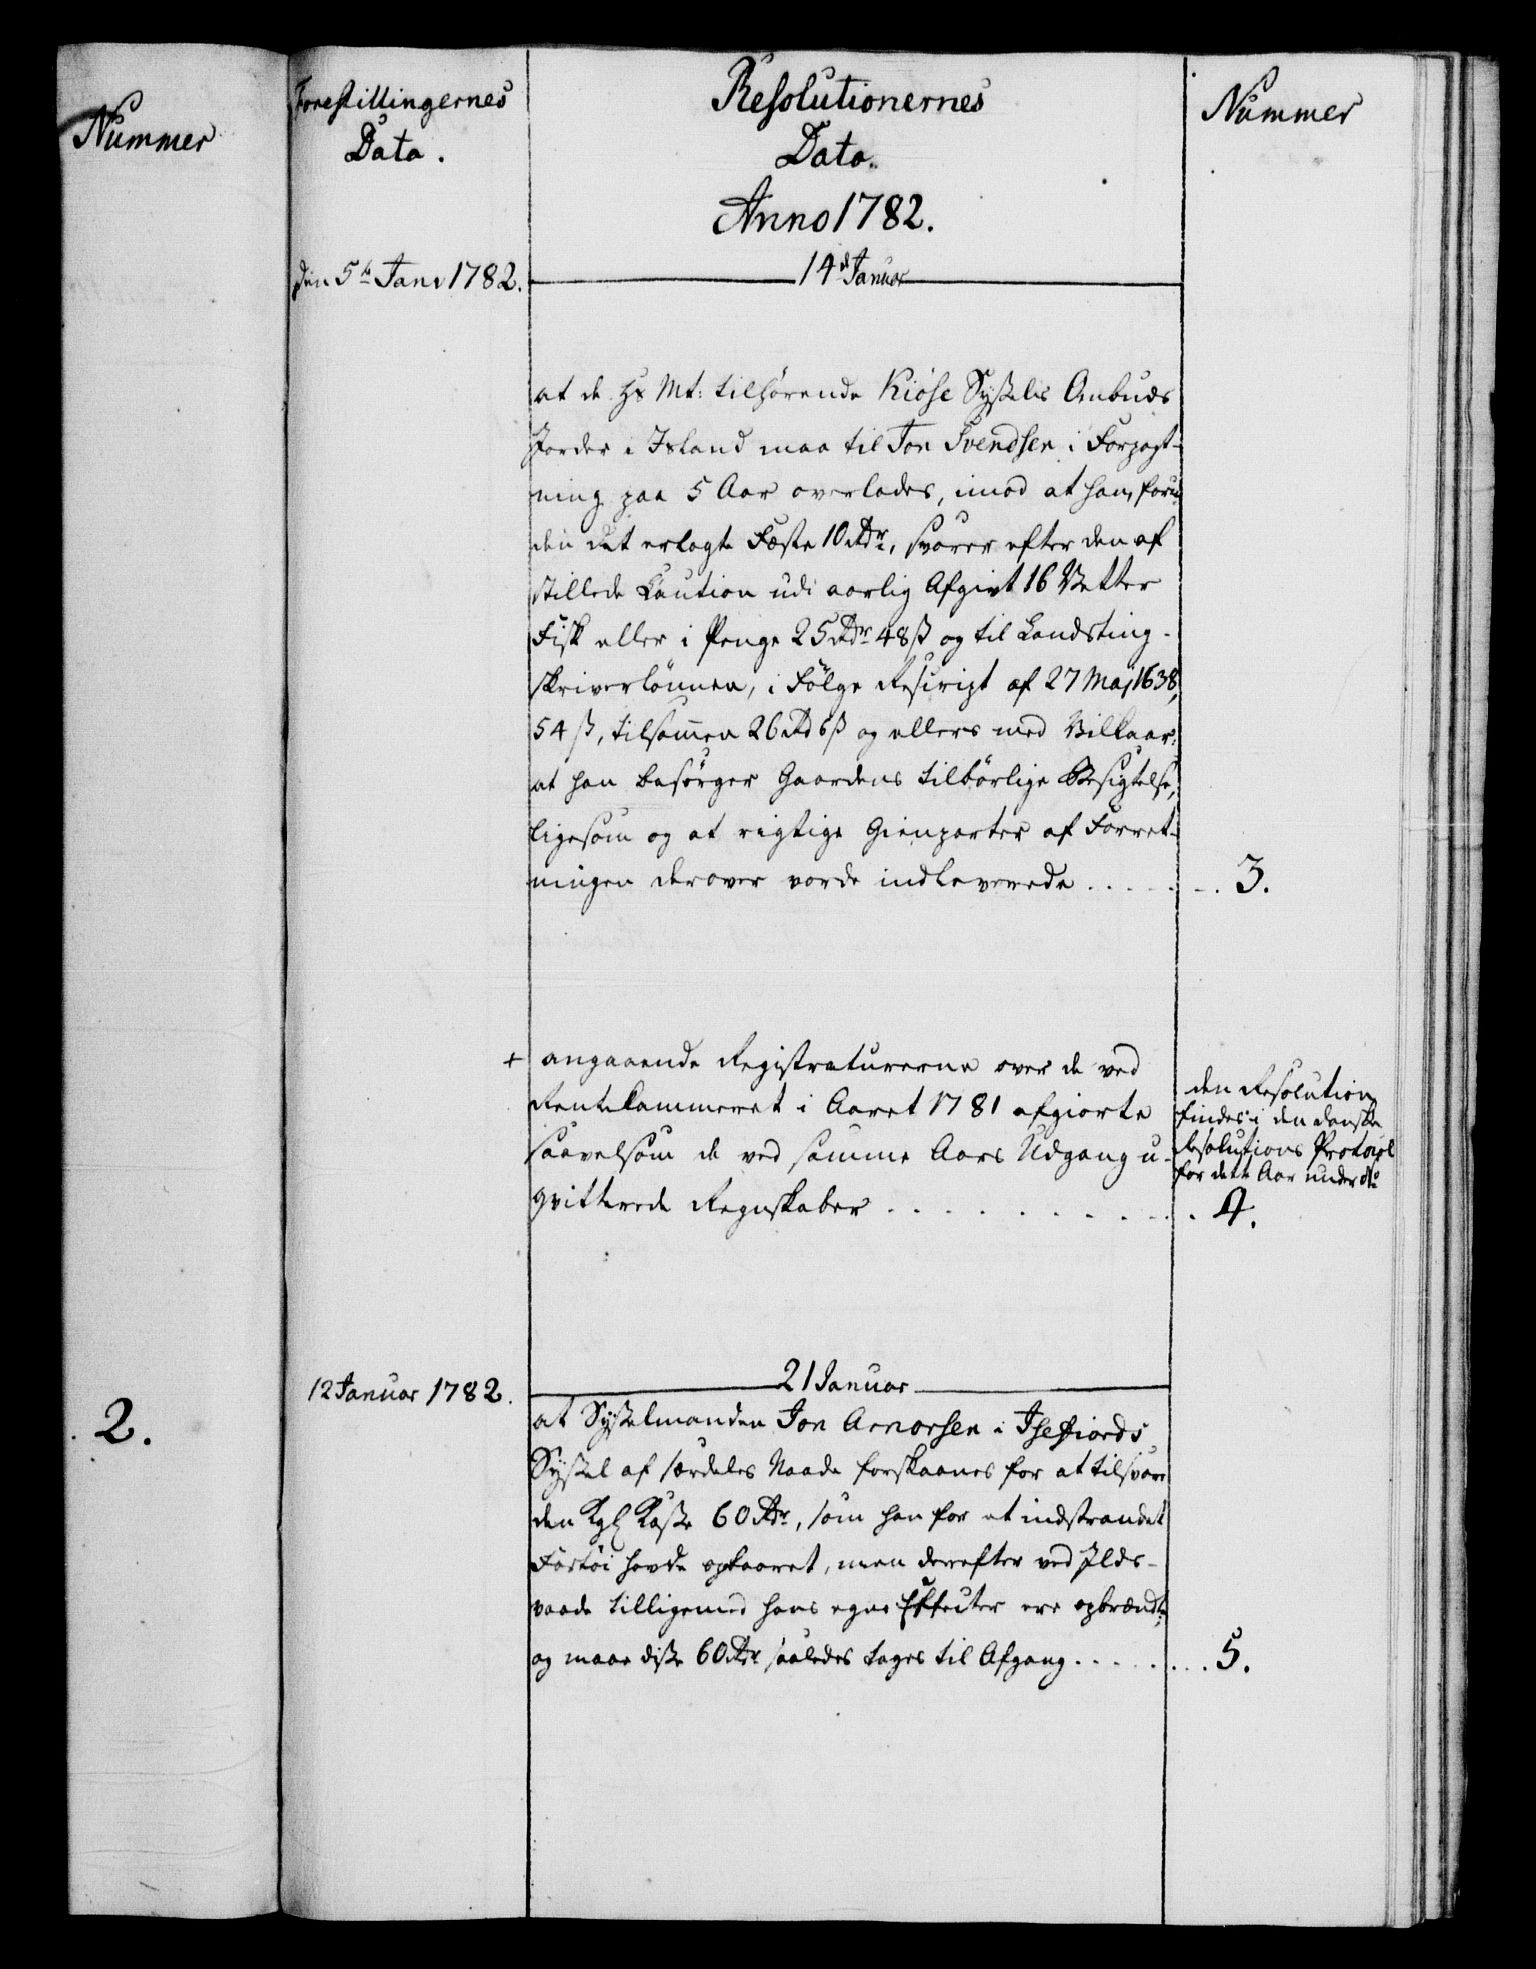 Nummer
2.
Forestillingernes
Data.
den 5te Janv 1782.
12 Januar 1782.
Resolutionernes
Data.
Anno 1782.
14d Januar
at de Hs Mt: tilhørende Kiöse Syssels Ombuds
Jorder i Island maa til Jon Svendsen i Forpagt-
ning paa 5 Aar overlades, imod at han, foru-
den det erlagte Fæste 10 Rdr, svarer efter den af
stillede Caution udi aarlig Afgivt 16 Vetter
Fisk eller i Penge 25 Rdr 48 ß og til Landsting-
skriverlønnen, i Følge Rescript af 27 Maj 1638,
54 ß, tilsamen 26 Rd 6 ß og ellers med Vilkaar:
at han besørger Gaardens tilbørlige Besigtelse,
ligesom og at rigtige Gienparter af Forret-
ningen derover vorde indleverede . . . . . . . 3.
+ angaaende Registraturerne over de ved
Rentekammeret i Aaret 1781 afgiorte
saavelsom de ved samme Aars Udgang u-
qvitterede Regnskaber . . . . . . . . . .
den Resolution
findes i den danske
Resolutions Protocol
for dette Aar under No
4.
21 Januar
at Sysselmanden Jon Arnorsen i Isefiords
Syssel af særdeles Naade forskaanes for at tilsvare
den Kgl Kasse 60 Rdr, som han for et indstrandet
Fartöi havde opbaaret, men derefter ved Ilds-
vaade tilligemed hans egne Effecter ere opbrændte,
og maae disse 60 Rdr saaledes tages til Afgang . . . . . . . . 5.
Nummer